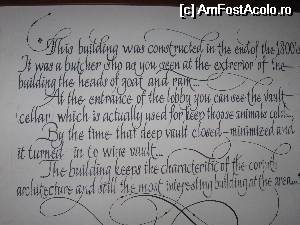 (c) AmFostAcolo.ro
This building was constructed in the end of the 1800's
It was a butcher shop as you seen at the exterior of the
building the heads of goat and ram
At the entrance of the lobby you can see the vault
cellar which is actually used for keep those animals cold...
By the time that deep vault closed-minimized and
it turned in to wine vault...
The building keeps the characteritic of the
architecture and still the most interesting building at the area...